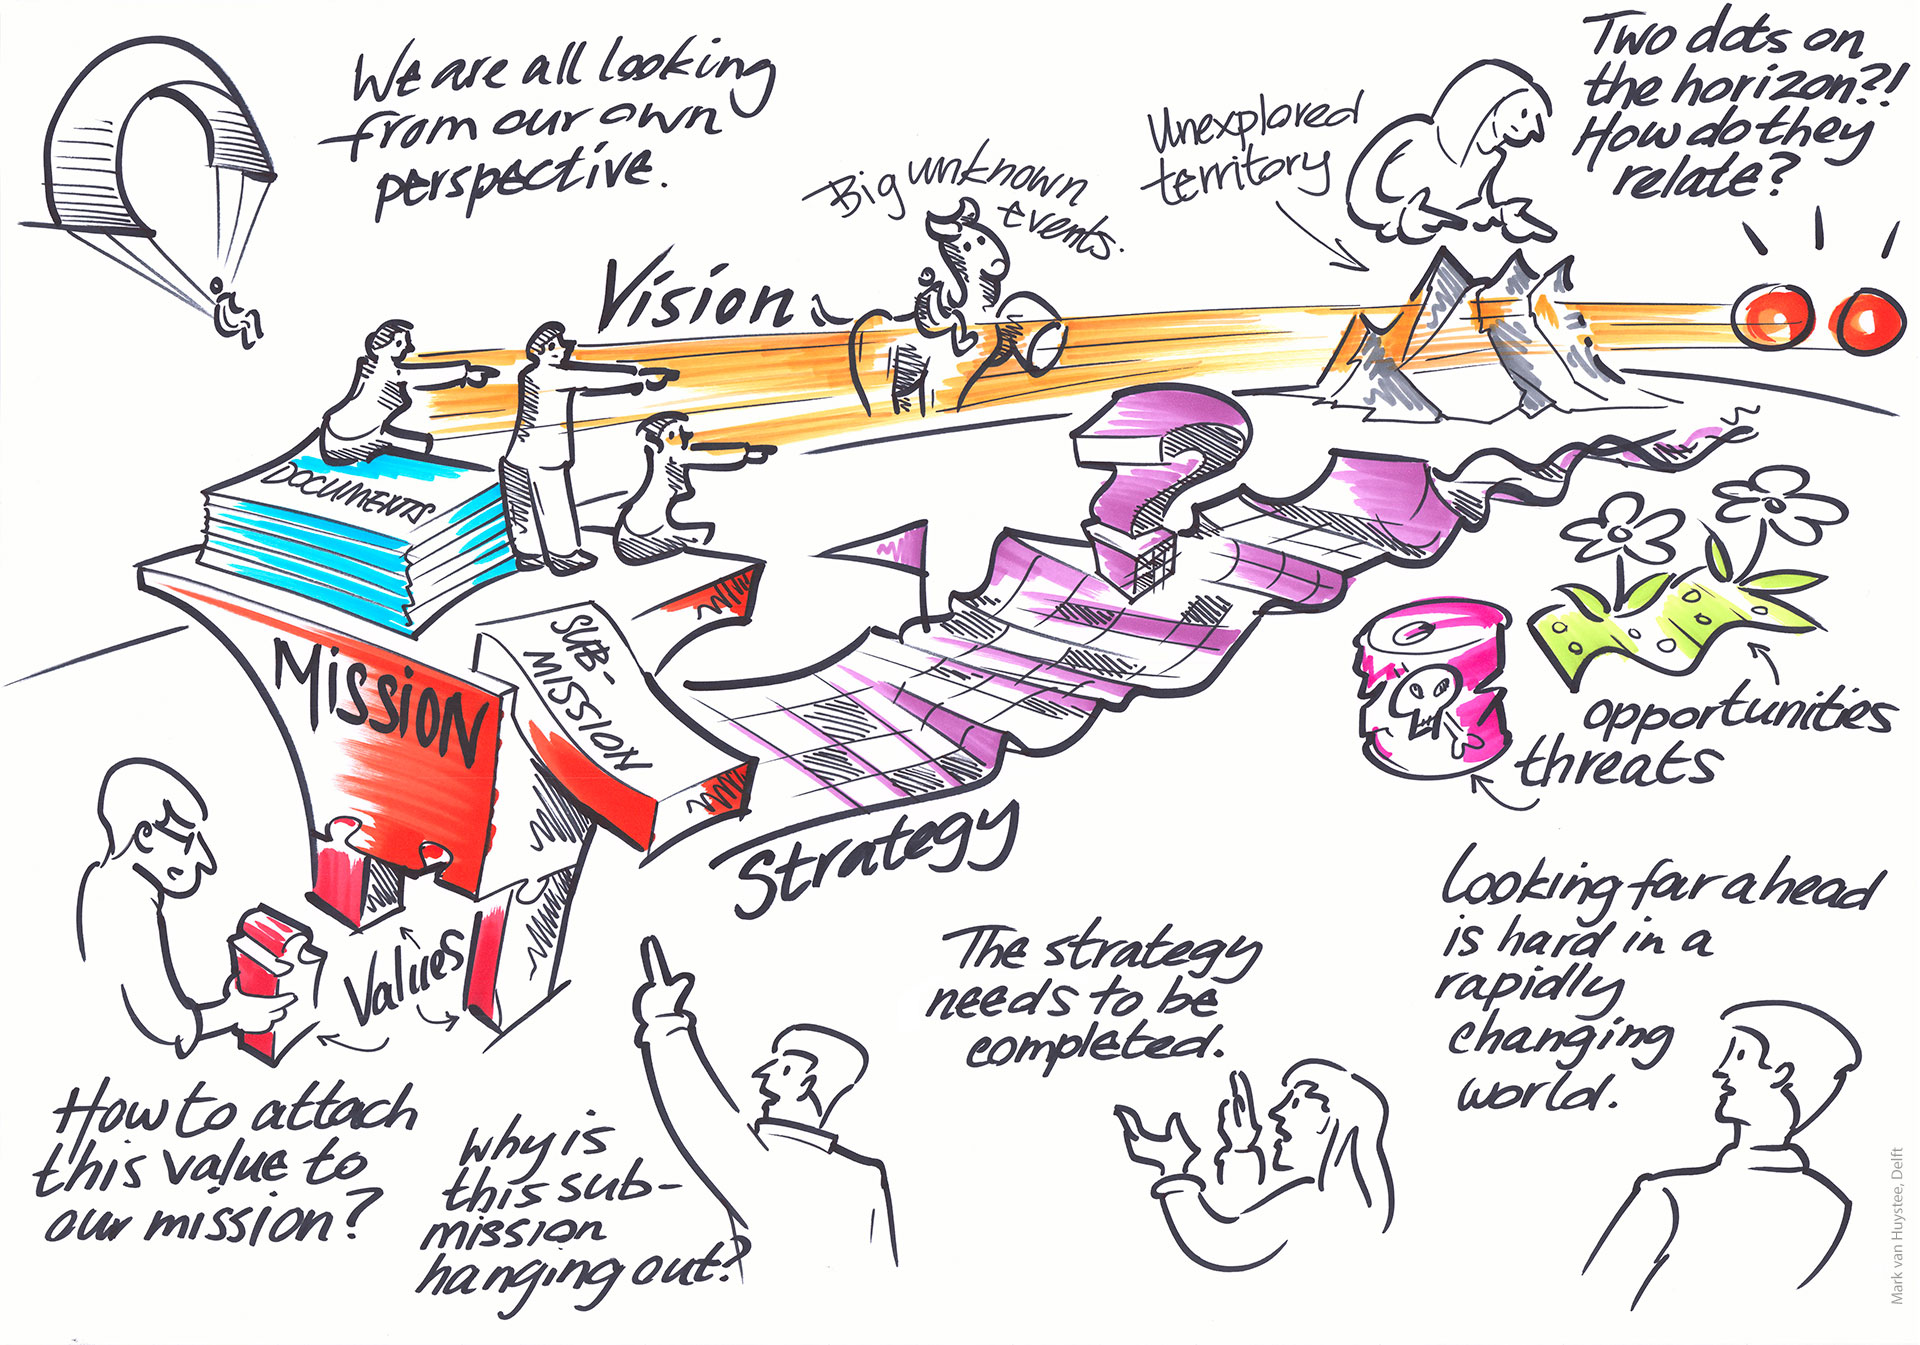 We are all looking
from our own
perspective.
Vision
Big unknown
events.
Unexplored
territory
Two dots on
the horizon?!
How do they
relate?
DOCUMENTS
MISSION
SUB-
MISSION
Strategy
opportunities
threats
Values
How to attach
this value to
our mission?
Why is
this sub-
mission
hanging out?
The strategy
needs to be
completed.
Looking far ahead
is hard in a
rapidly
changing
world.
Mark van Huystee, Delft